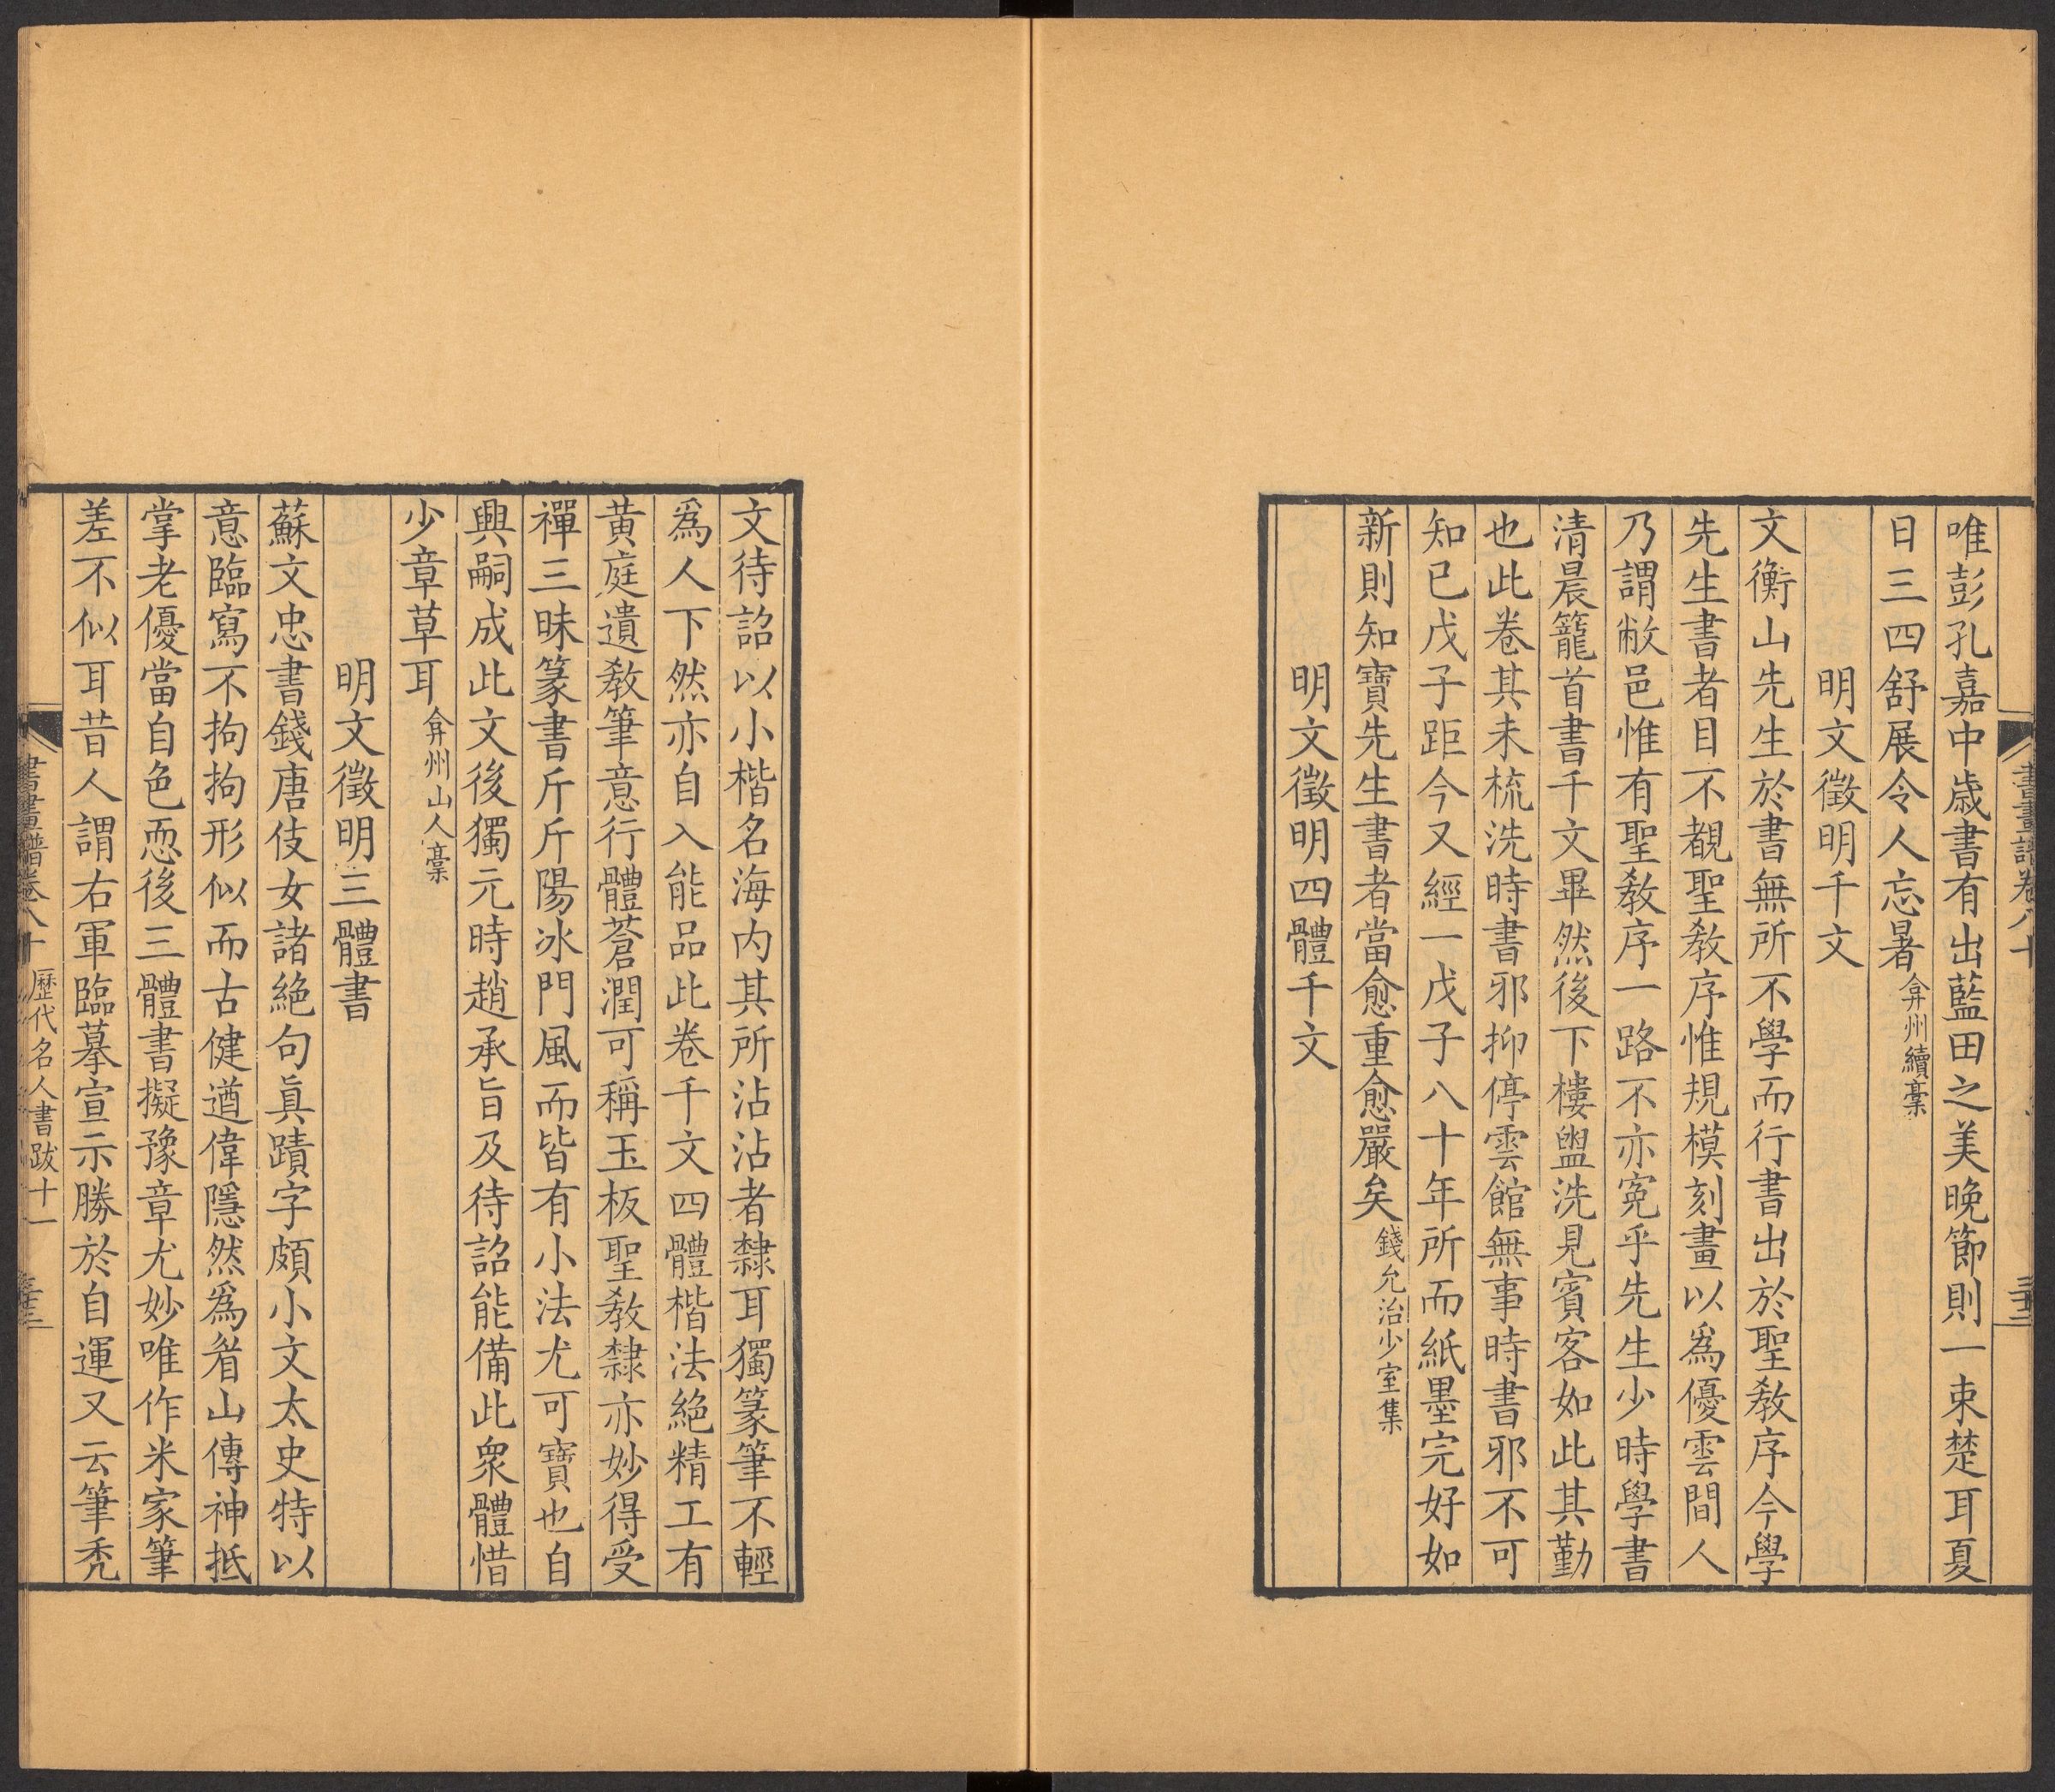 唯彭孔嘉中歲書有出藍田之美晚節則一束楚耳夏
日三四舒展令人忘暑弇州續稾
明文徵明千文
文衡山先生於書無所不學而行書出於聖教序今學
先生書者目不覩聖教序惟規模刻畫以爲優雲間人
乃謂敝邑惟有聖教序一路不亦寃乎先生少時學書
清晨籠首書千文畢然後下樓盥洗見賓客如此其勤
也此卷其未梳洗時書邪抑停雲館無事時書邪不可
知已戊子距今又經一戊子八十年所而紙墨完好如
新則知寶先生書者當愈重愈嚴矣錢允治少室集
明文徵明四體千文
文待詔以小楷名海內其所沾沾者隸耳獨篆筆不輕
爲人下然亦自入能品此卷千文四體楷法絕精工有
黃庭遺教筆意行體蒼潤可稱玉板聖教隸亦妙得受
禪三昧篆書斤斤陽冰門風而皆有小法尤可寶也自
興嗣成此文後獨元時趙承旨及待詔能備此衆體惜
少章草耳弇州山人稾
明文徵明三體書
蘇文忠書錢唐伎女諸絕句眞蹟字頗小文太史特以
意臨寫不拘拘形似而古健遒偉隱然爲眉山傳神抵
掌老優當自色恧後三體書擬豫章尤妙唯作米家筆
差不似耳昔人謂右軍臨摹宣示勝於自運又云筆禿
書畫譜卷八十 歷代名人書跋十一